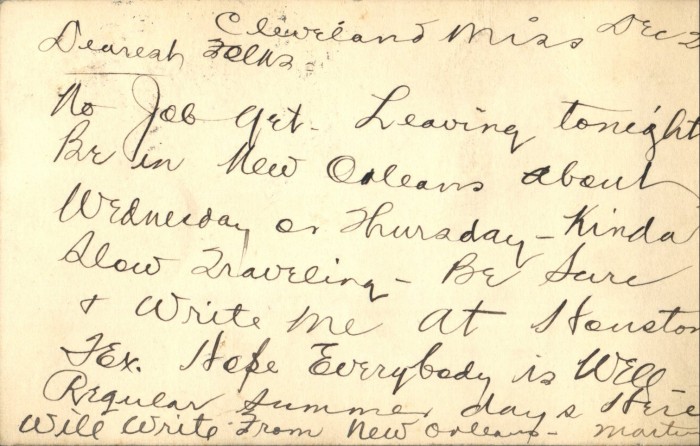 Cleveland Miss Dec 2
Dearest Folks
No Job yet - Leaving tonight
Be in New Orleans about
Wednesday or Thursday - Kinda
Slow Traveling - Be Sure
& Write Me At Houston
Tex. Hope Everybody is Well
Regular summer days Here
Will Write From New Orleans - Martin